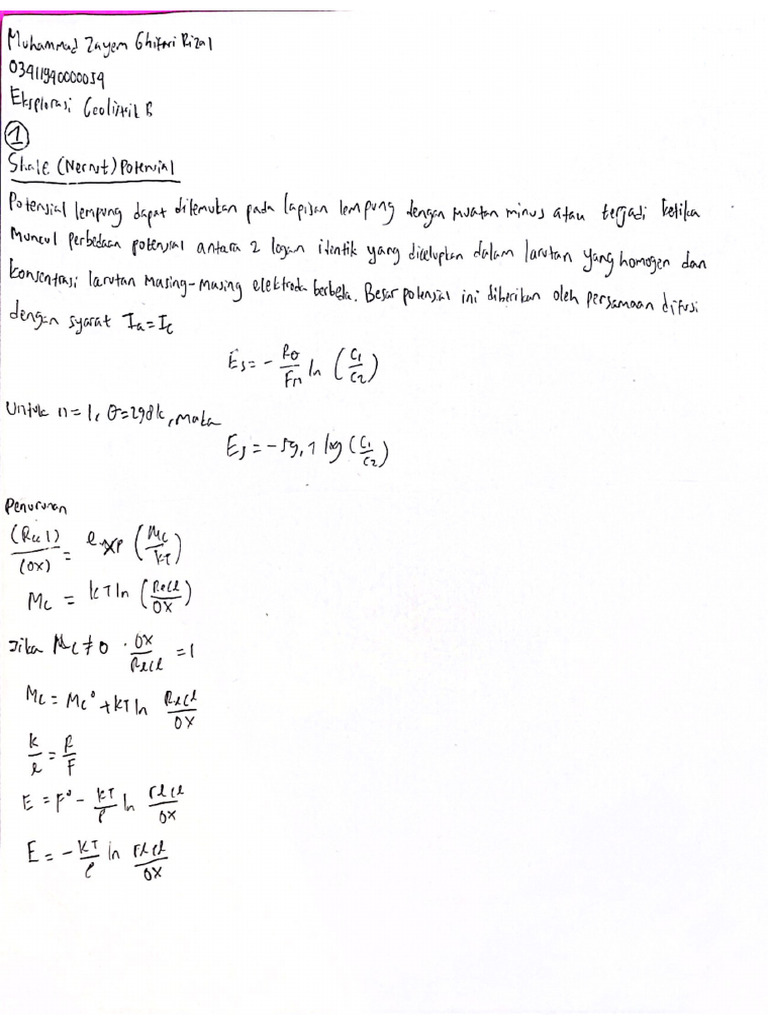 Muhammad Zayem Ghifari Rizal
03411940000059
Eksplorasi Geolistrik B
1
Shale (Nernst) Potensial
Potensial lempung dapat ditemukan pada lapisan lempung dengan muatan minus atau terjadi ketika
Muncul perbedaan potensial antara 2 logam identik yang dicelupkan dalam larutan yang homogen dan
konsentrasi larutan masing-masing elektroda berbeda. Besar potensial ini diberikan oleh persamaan difusi
dengan syarat Ia = Ic
Es = - Rθ/Fn ln (C1/C2)
Untuk n = 1, θ = 298k, maka
Es = -59,1 log (C1/C2)
Penurunan
(Red)/(OX) = exp (Mc/kT)
Mc = kT ln (Red/OX)
Jika Mc ≠ 0 . OX/Red = 1
Mc = Mc° + kT ln Red/OX
k/e = R/F
E = E° - kT/e ln red/OX
E = - kT/e ln red/OX